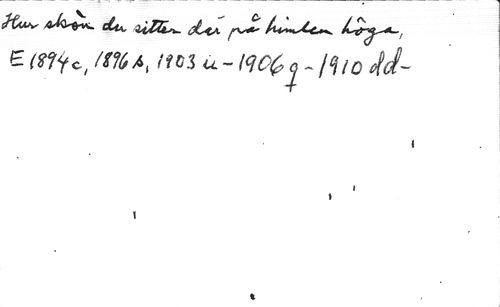 Hur skön du sitter där på himlen höga,
E 1894 c, 1896 s, 1903 ii - 1906 q - 1910 dd -